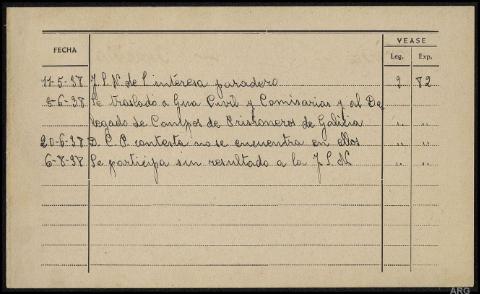 VEASE
FECHA Leg. Exp.
11-5-37 J.S.N. de S. interesa paradero 2 82
5-6-37 Se traslado a Gua Civil y Comisarias y al De
legado de Campos de Prisioneros de Galicia " "
20-6-37 D.C.P. contesta no se encuentra en ellos " "
6-8-37 Se participa sin resultado a la J.S.N. " "
ARG